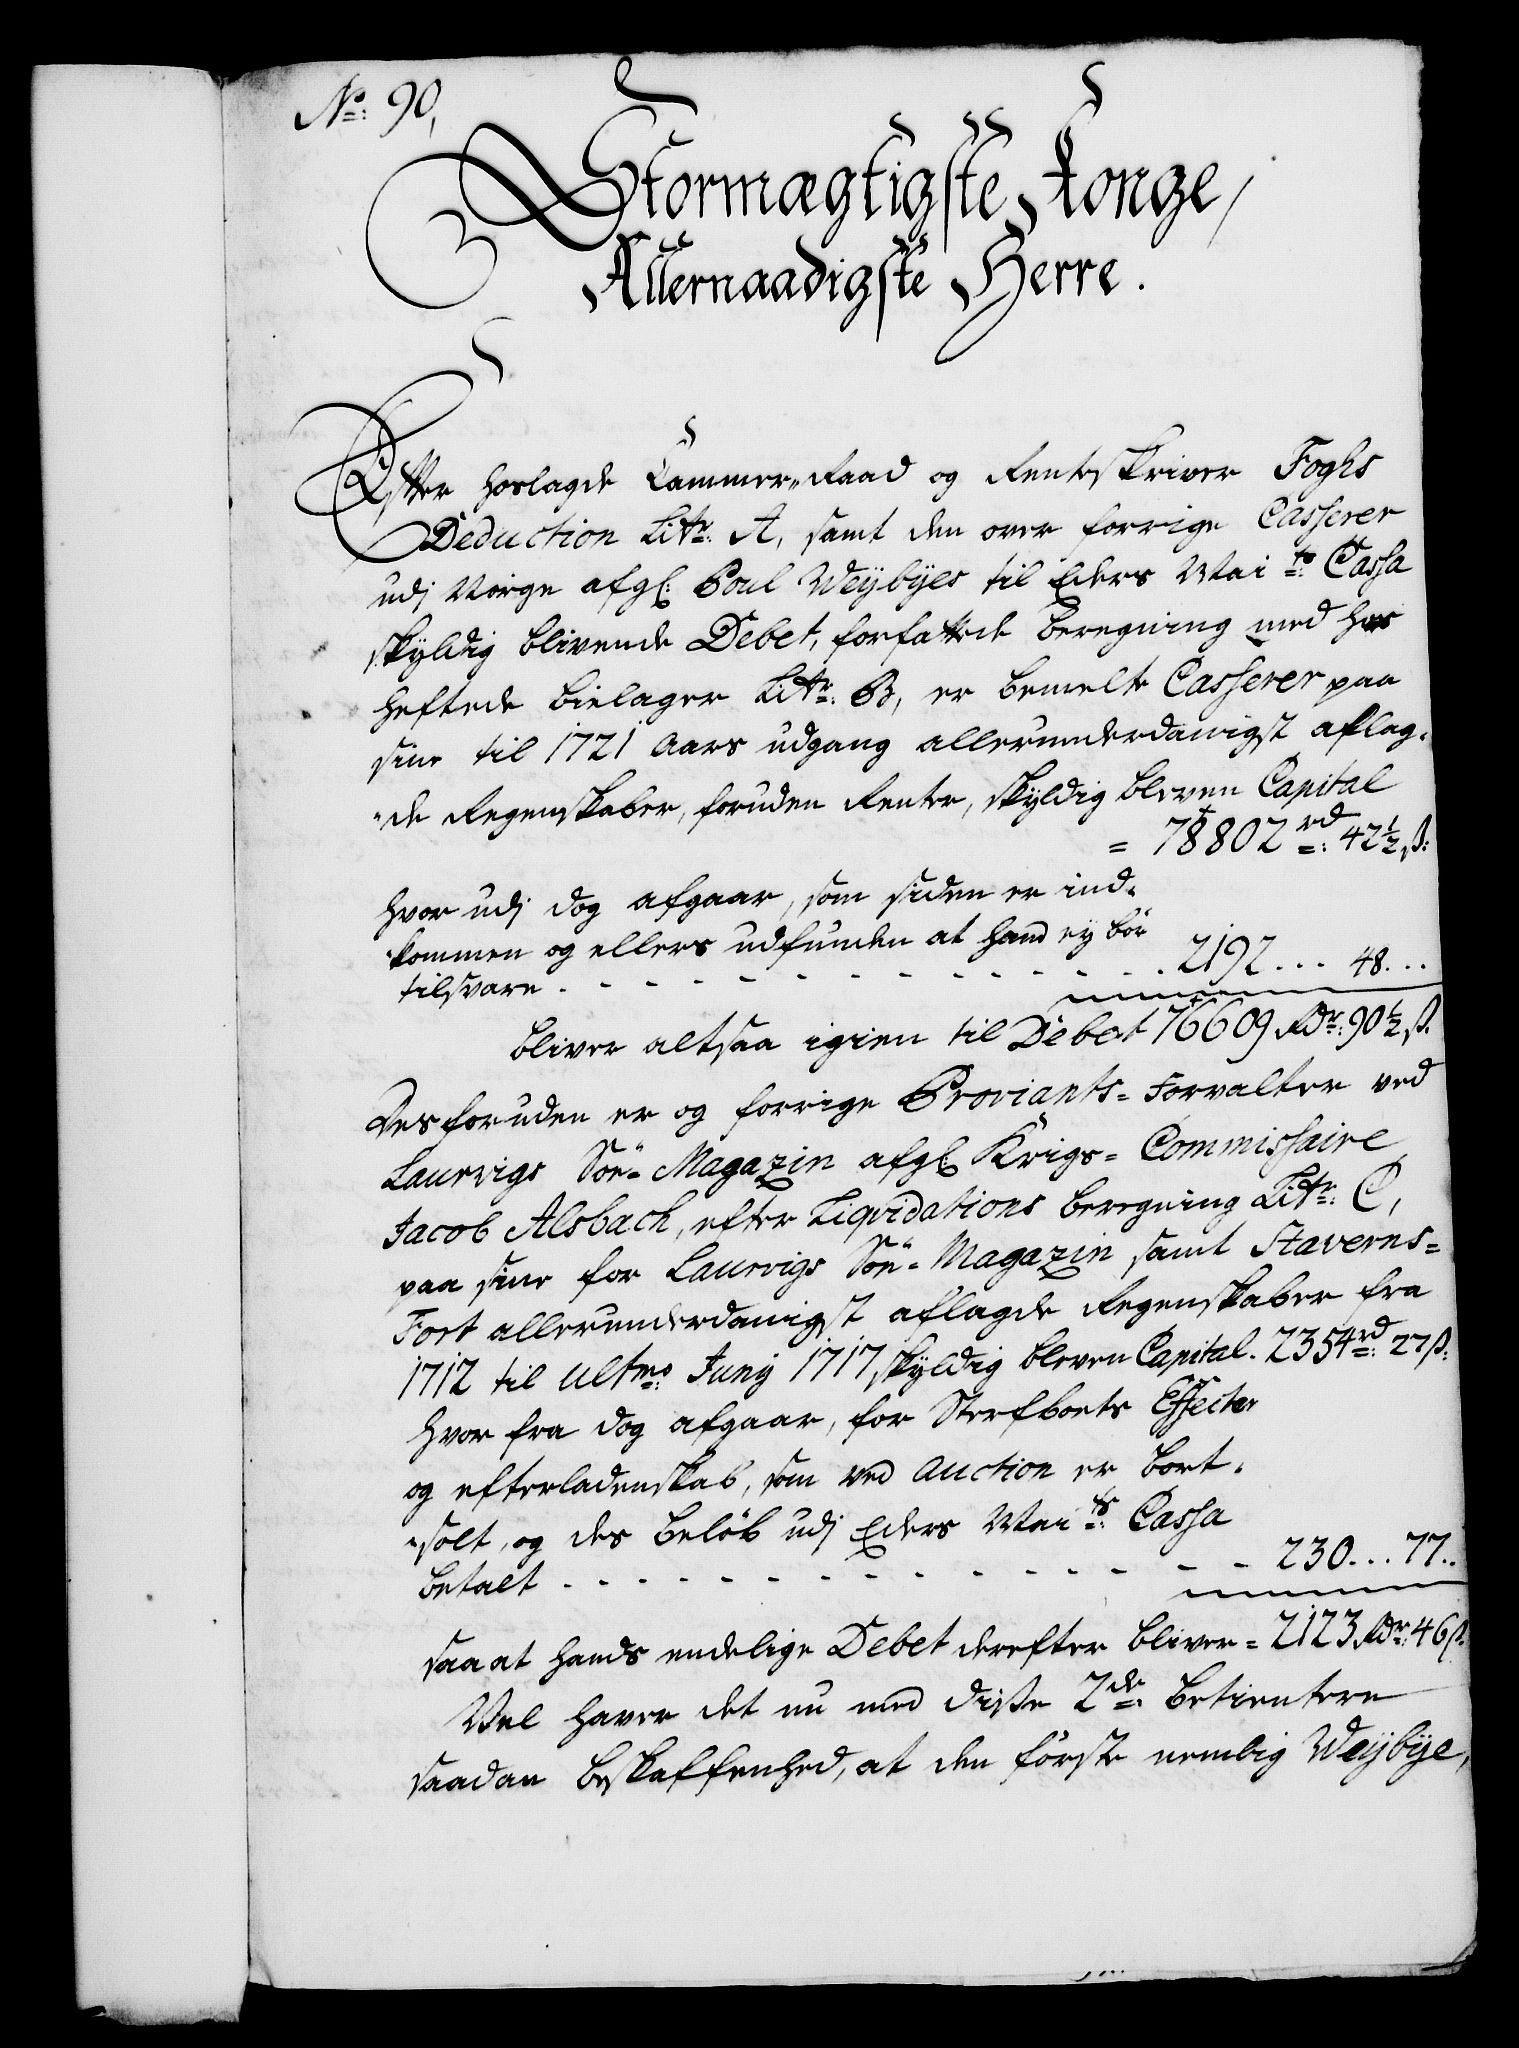 No: 90,
Stormægtigste Konge,
Allernaadigste Herre.
Efter hoslagde Cammer-Raad og Renteskriver Foghs
Deduction Litr: A, samt den over forrige Casserer
udj Norge afgl: Poul Weybyes til Eders Maits: Cassa
skyldig blivende Debet, forfattede beregning med hos
heftede bielager Litr: B, er bemelte Casserer paa
sine til 1721 Aars udgang allerunderdanigst aflag-
-de Regenskaber, foruden Renter, skyldig bleven Capital
= 78802 rd: 42½ ß:
hvor udj dog afgaar, som siden er ind-
-kommen og ellers udfunden at hand ey bör
tilsvare - - - - - - - - - - - 2192... 48...
bliver altsaa igien til Debet 76609 Rdr: 90½ ß.
Desforuden er og forrige Proviants-Forvalter ved
Laurvigs Söe-Magazin afgl: Krigs-Commissaire
Jacob Alsbach, efter Liqvidations beregning Litr: C,
paa sine for Laurvigs Söe-Magazin samt Staverns-
Fort allerunderdanigst aflagde Regenskaber fra
1712 til Ultmo: Juny 1717 skyldig bleven Capital. 2354 rd: 27 ß:
hvor fra dog afgaar, for Sterfboets Effecter
og efterladenskab, som ved Auction er bort-
-solt, og des belöb udj Eders Maits: Cassa
betalt - - - - - - - - - - - - 230... 77..
saa at hands endelige Debet derefter bliver = 2123 Rdr: 46 ß.
Vel haver det nu med disse 2de: betientere
saadan beskaffenhed, at den förste nemblig Weybye,